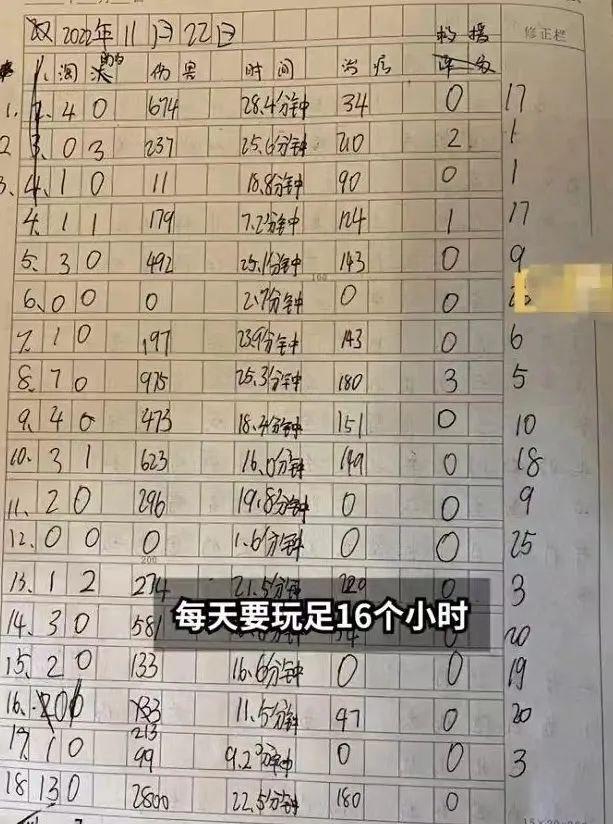 双 2022年11月22日 救援 修正栏
淘汰 助攻 伤害 时间 治疗
1. 4 0 674 28.4分钟 34 0 17
2 0 3 237 25.6分钟 210 2 1
3. 1 0 11 18.8分钟 90 0 1
4. 1 1 179 7.2分钟 124 1 17
5. 3 0 492 25.1分钟 143 0 9
6. 0 0 0 2.7分钟 0 0
7. 1 0 197 23.9分钟 143 0 6
8. 7 0 975 25.3分钟 180 3 5
9. 4 0 473 18.4分钟 151 0 10
10. 3 1 623 16.0分钟 149 0 18
11. 2 0 296 19.8分钟 0 0 9
12. 0 0 0 1.6分钟 0 0 25
200
13. 1 2 274 21.5分钟 0 3
每天要玩足16个小时
14. 3 0 581 0 20
15. 2 0 133 16.6分钟 0 0 19
16. 213 11.5分钟 47 0 20
17. 1 0 99 9.2分钟 0 0 3
18 13 0 2800 22.5分钟 180 0